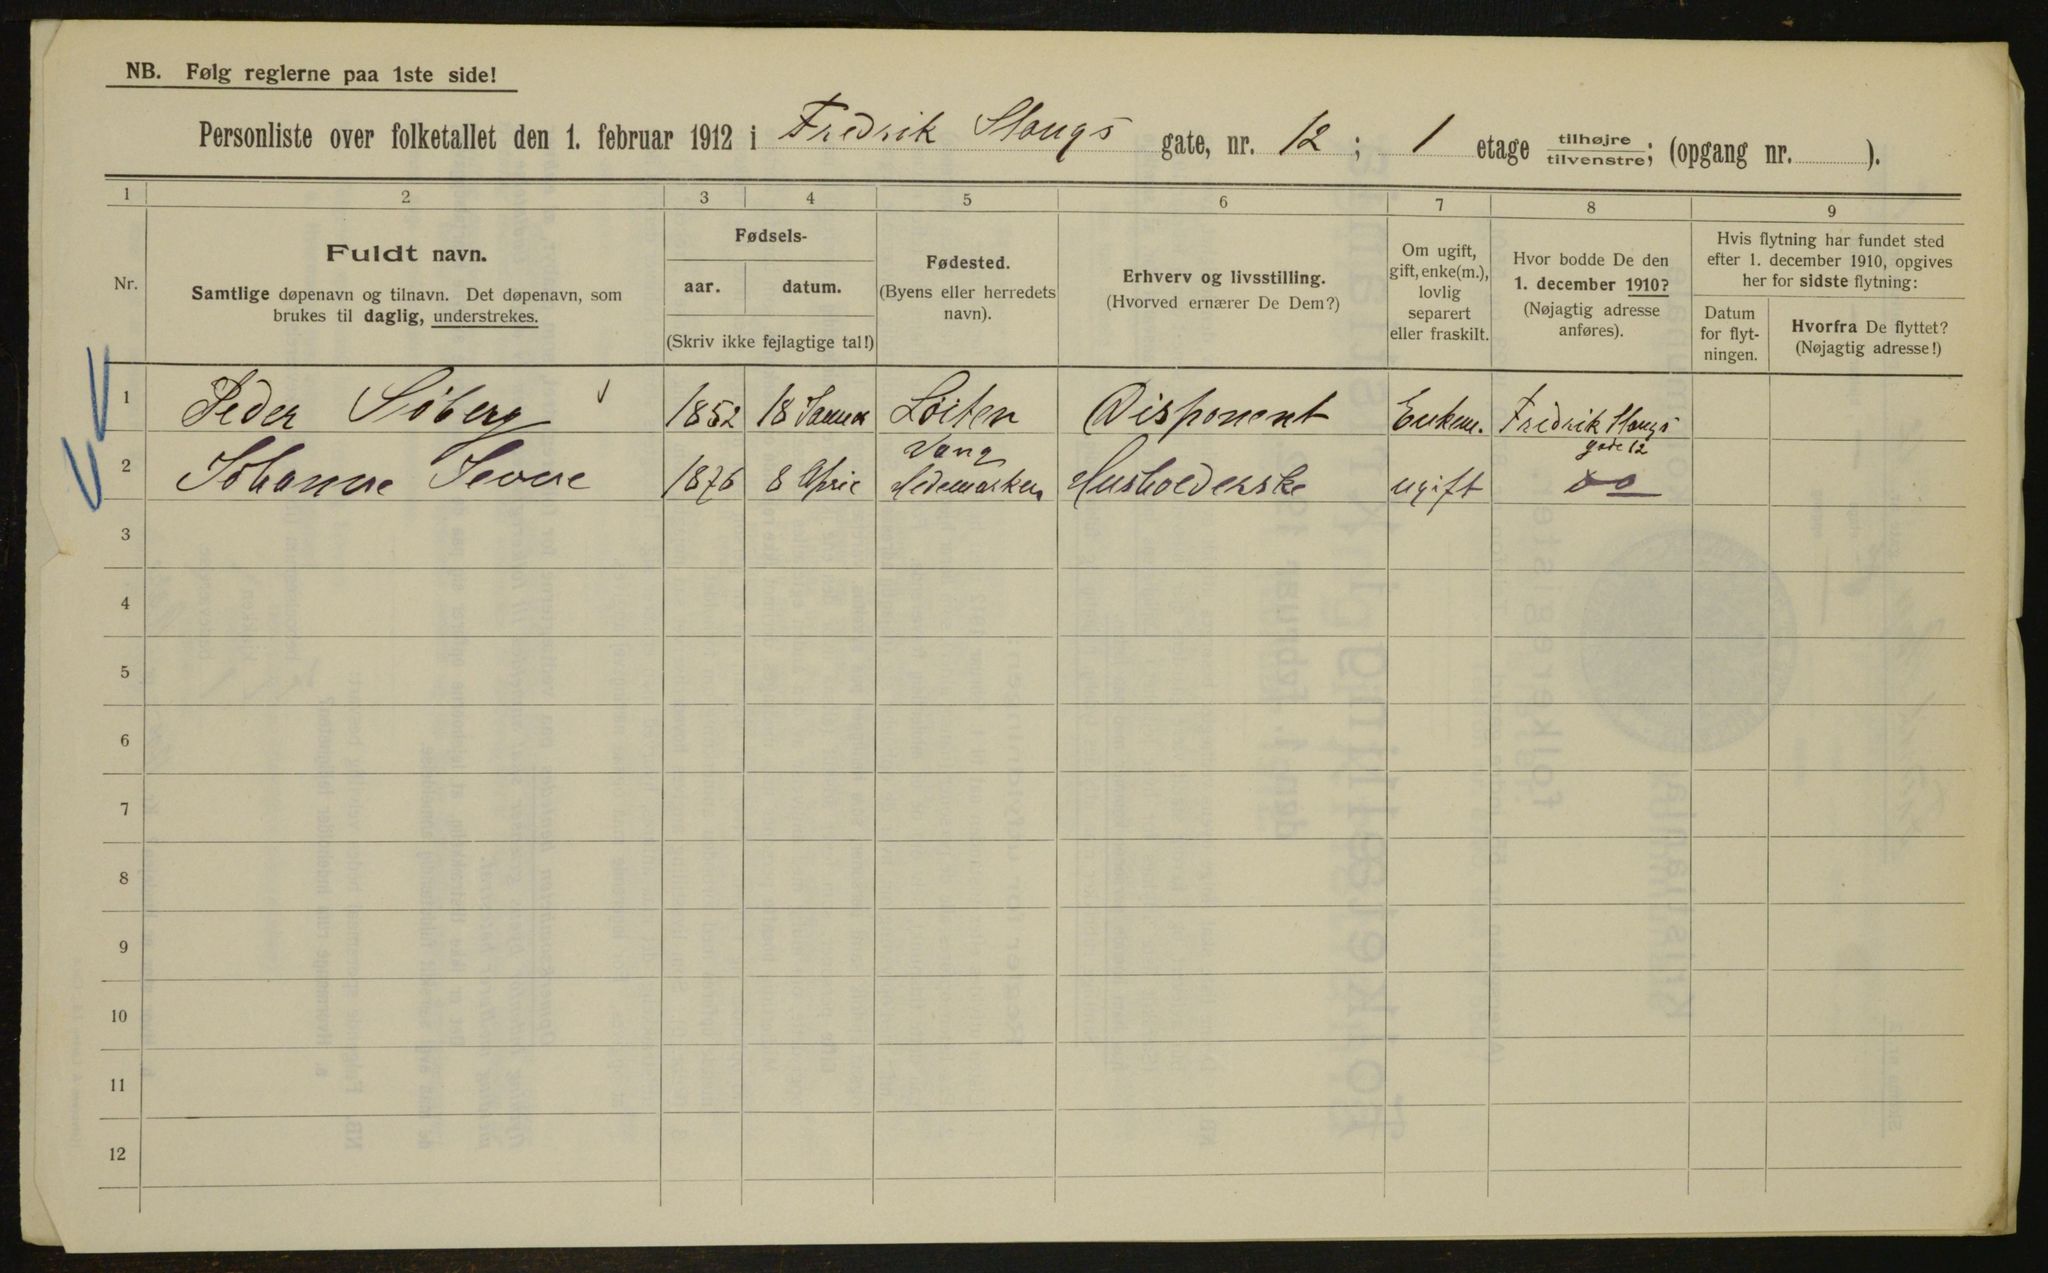 NB. Følg reglerne paa 1ste side!
Personliste over folketallet den 1. februar 1912 i Fredrik Stangs gate, nr. 12 ; 1 etage tilhøjre tilvenstre; (opgang nr. ).
1 2 3 4 5 6 7 8 9
Nr.
Fuldt navn.
Samtlige døpenavn og tilnavn. Det døpenavn, som
brukes til daglig, understrekes.
Fødsels-
aar. datum.
(Skriv ikke fejlagtige tal!)
Fødested.
(Byens eller herredets
navn).
Erhverv og livsstilling.
(Hvorved ernærer De Dem?)
Om ugift,
gift, enke(m.),
lovlig
separert
eller fraskilt.
Hvor bodde De den
1. december 1910?
(Nøjagtig adresse
anføres).
Hvis flytning har fundet sted
efter 1. december 1910, opgives
her for sidste flytning:
Datum
for flyt-
ningen.
Hvorfra De flyttet?
(Nøjagtig adresse!)
1 Peder Søberg 1852 18 Løiten Disponent Enkem. Fredrik Stangs
gade 12
2 Johanne 1876 8 April Vang
Hedemarken Husholderske ugift do
3
4
5
6
7
8
9
10
11
12